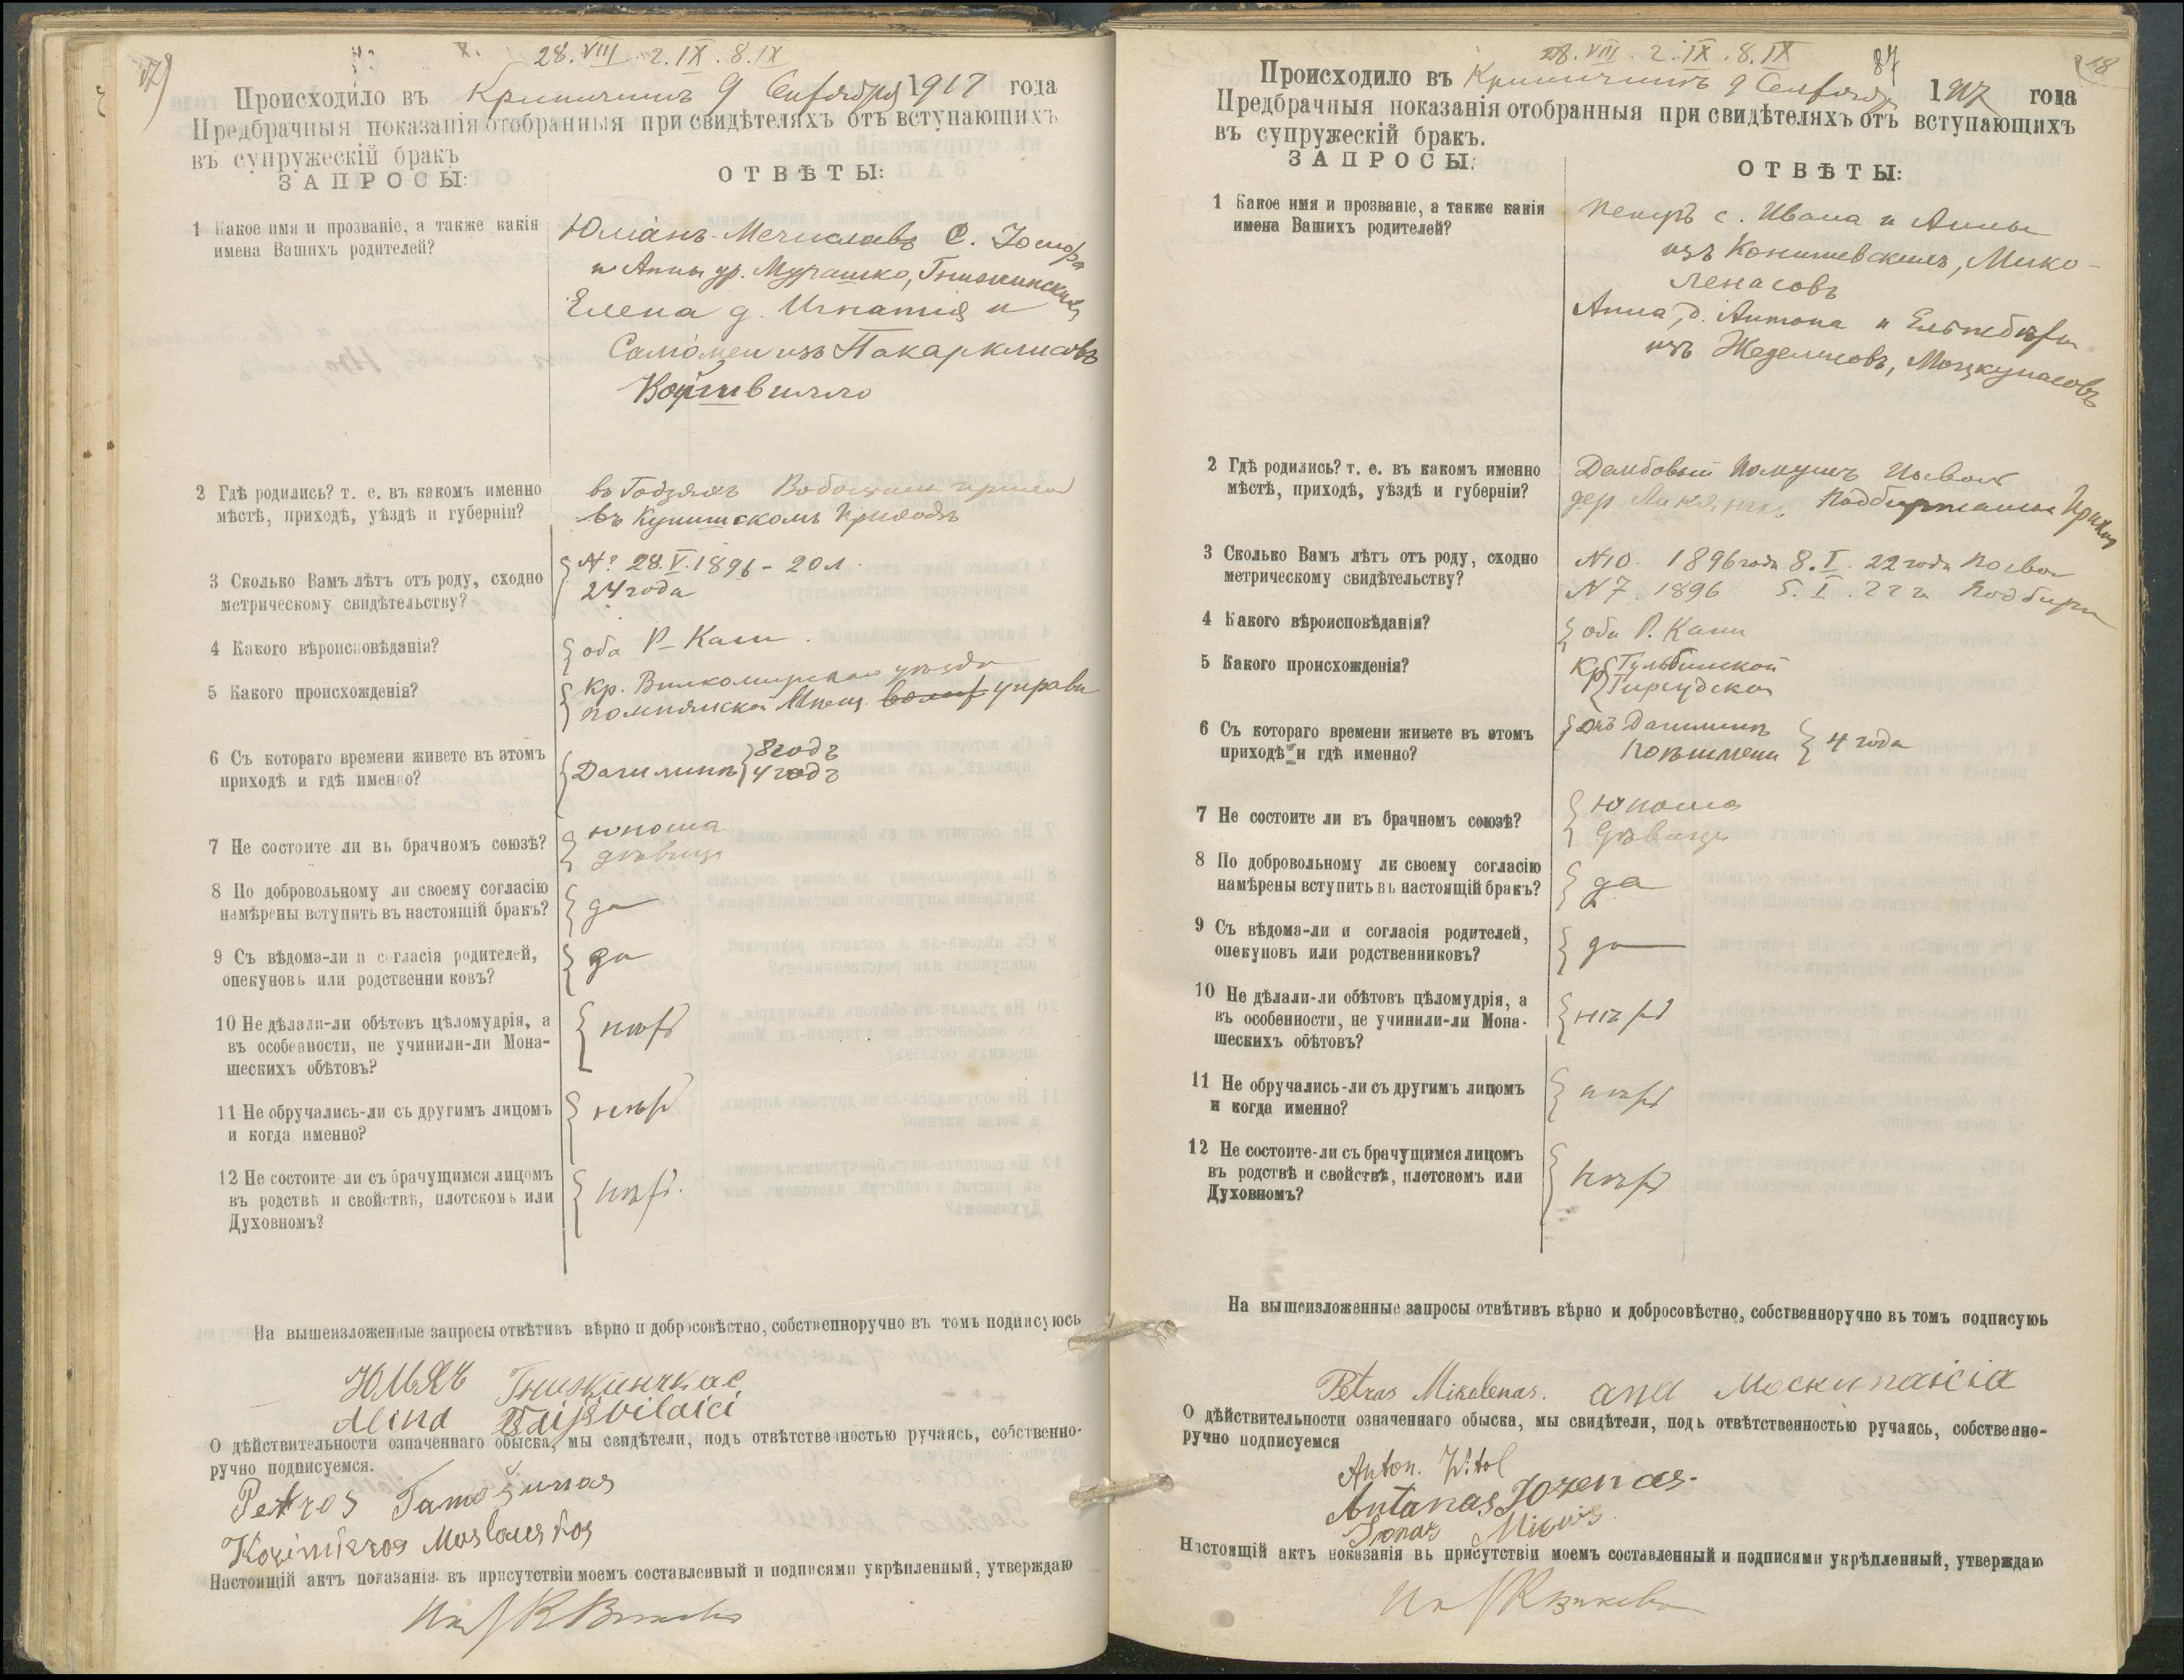 28. VIII. 2. IX. 8. IX
Происходило въ Криничинъ 9 Сентября 1917 года
Предбрачныя показанія отобранныя при свидѣтеляхъ отъ вступающихъ
въ супружескій бракъ
ЗАПРОСЫ: ОТВѢТЫ:
1 Какое имя и прозваніе, а также какія
имена Вашихъ родителей?
Юліанъ-Мечиславъ С. Іосифа
и Анны ур. Мурашко,
Елена д. Игнатія и
Саломеи изъ
2 Гдѣ родились? т. е. въ какомъ именно
мѣстѣ, приходѣ, уѣздѣ и губерніи?
въ
въ Купишскомъ приходѣ
3 Сколько Вамъ лѣтъ отъ роду, сходно
метрическому свидѣтельству?
№ 28. V. 1896 - 20 л.
24 года
4 Какого вѣроисповѣданія?
оба Р-Кат.
5 Какого происхожденія?
Кр. Вилкомирскаго уѣзда
Мѣщ. управы
6 Съ котораго времени живете въ этомъ
приходѣ и гдѣ именно?
8 годъ
4 годъ
7 Не состоите ли въ брачномъ союзѣ?
юноша
дѣвица
8 По добровольному ли своему согласію
намѣрены вступить въ настоящій бракъ?
да
9 Съ вѣдома-ли и согласія родителей,
опекуновъ или родственни ковъ?
да
10 Не дѣлали-ли обѣтовъ цѣломудрія, а
въ особенности, не учинили-ли Мона-
шескихъ обѣтовъ?
нѣтъ
11 Не обручались-ли съ другимъ лицомъ
и когда именно?
нѣтъ
12 Не состоите ли съ брачущимся лицомъ
въ родствѣ и свойствѣ, плотскомъ или
Духовномъ?
нѣтъ.
На вышеизложенные запросы отвѣтивъ вѣрно и добросовѣстно, собственноручно въ томъ подписуюсь
О дѣйствительности означеннаго обыска, мы свидѣтели, подъ отвѣтственностью ручаясь, собственно-
ручно подписуемся.
Petros Tamošunas
Kazimieras
Настоящій актъ показанія въ присутствіи моемъ составленный и подписями укрѣпленный, утверждаю
28. VIII. 2. IX. 8. IX
18
Происходило въ Криничинъ 9 Сентября 1917 года
Предбрачныя показанія отобранныя при свидѣтеляхъ отъ вступающихъ
въ супружескій бракъ.
ЗАПРОСЫ: ОТВѢТЫ:
1 Какое имя и прозваніе, а также какія
имена Вашихъ родителей?
Петръ с. Ивана и Анны
изъ Мико-
ленасовъ
Анна, д. Антона и Ельжбеты
изъ Моцкунасовъ
2 Гдѣ родились? т. е. въ какомъ именно
мѣстѣ, приходѣ, уѣздѣ и губерніи?
дер
3 Сколько Вамъ лѣтъ отъ роду, сходно
метрическому свидѣтельству?
№10. 1896 года 8. I. 22 года
№ 7 1896 5. I. 22 г.
4 Какого вѣроисповѣданія?
оба Р. Кати
5 Какого происхожденія?
Кр
6 Съ котораго времени живете въ этомъ
приходѣ и гдѣ именно?
4 года
7 Не состоите ли въ брачномъ союзѣ?
юноша
дѣвица
8 По добровольному ли своему согласію
намѣрены вступить въ настоящій бракъ?
да
9 Съ вѣдома-ли и согласія родителей,
опекуновъ или родственниковъ?
да
10 Не дѣлали-ли обѣтовъ цѣломудрія, а
въ особенности, не учинили-ли Мона-
шескихъ обѣтовъ?
нѣтъ
11 Не обручались-ли съ другимъ лицомъ
и когда именно?
нѣтъ
12 Не состоите-ли съ брачущимся лицомъ
въ родствѣ и свойствѣ, плотскомъ или
Духовномъ?
нѣтъ
На вышеизложенные запросы отвѣтивъ вѣрно и добросовѣстно, собственноручно въ томъ подписуюь
Petras Mikolenas.
О дѣйствительности означеннаго обыска, мы свидѣтели, подъ отвѣтственностью ручаясь, собственно-
ручно подписуемся
Anton. Witol
Antanas Jozenas.
Настоящій актъ показанія въ присутствіи моемъ составленный и подписями укрѣпленный, утверждаю